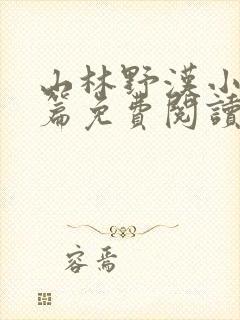 山林野漢小
篇免費閱讀
容焉